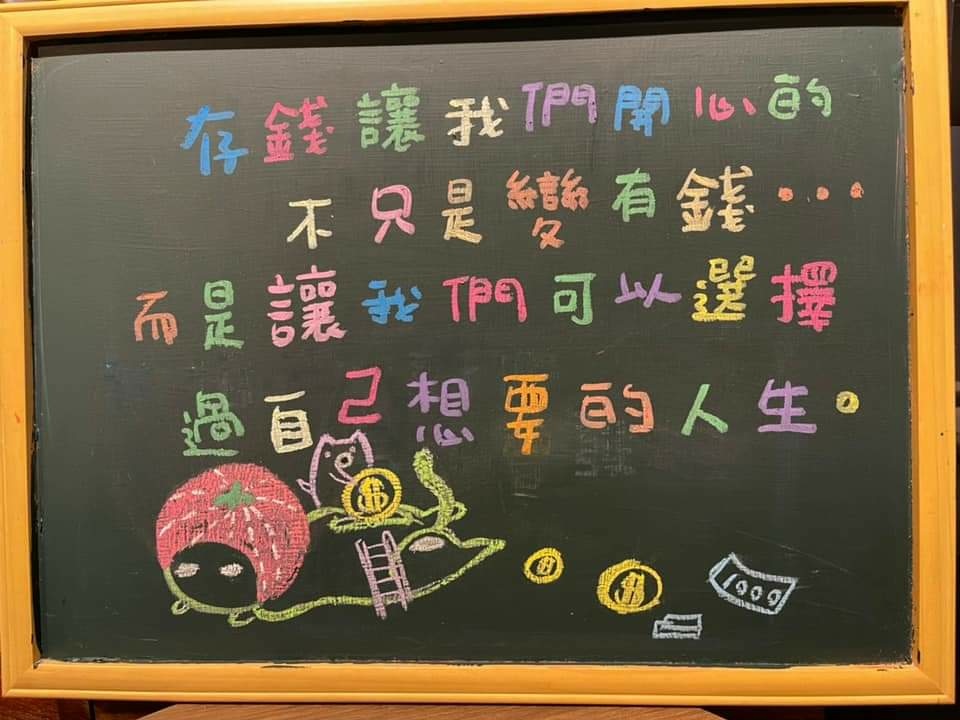 存錢讓我們開心的
不只是變有錢...
而是讓我們可以選擇
過自己想要的人生。
$
$
$
1000